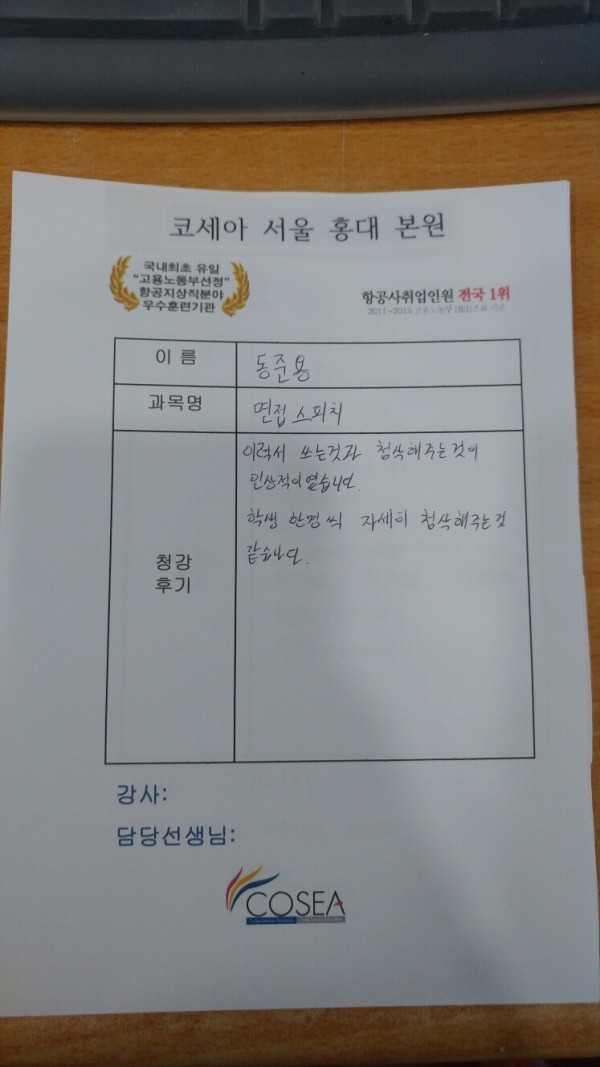 코세아 서울 홍대 본원
국내최초 유일
"고용노동부선정"
항공지상직분야
우수훈련기관
항공사취업인원 전국 1위
이 름
동준용
과목명
면접 스피치
청강
후기
이력서 쓰는것과 첨삭해주는것이
인상적이였습니다.
학생 한명 씩 자세히 첨삭해주는것
같습니다.
강사:
담당선생님:
COSEA